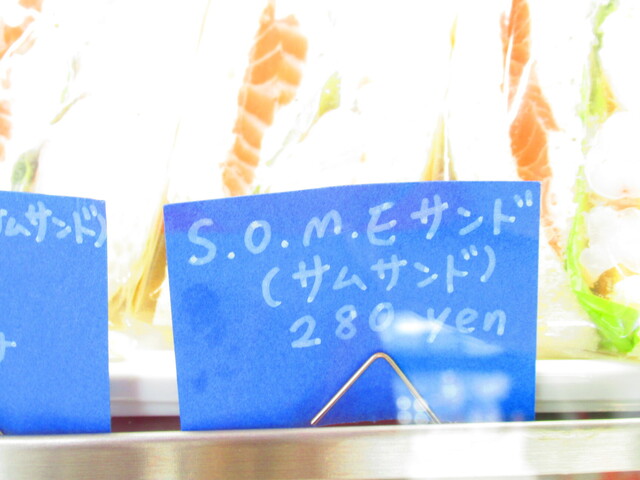 S.O.M.Eサンド
(サムサンド)
280 yen
ムサンド)